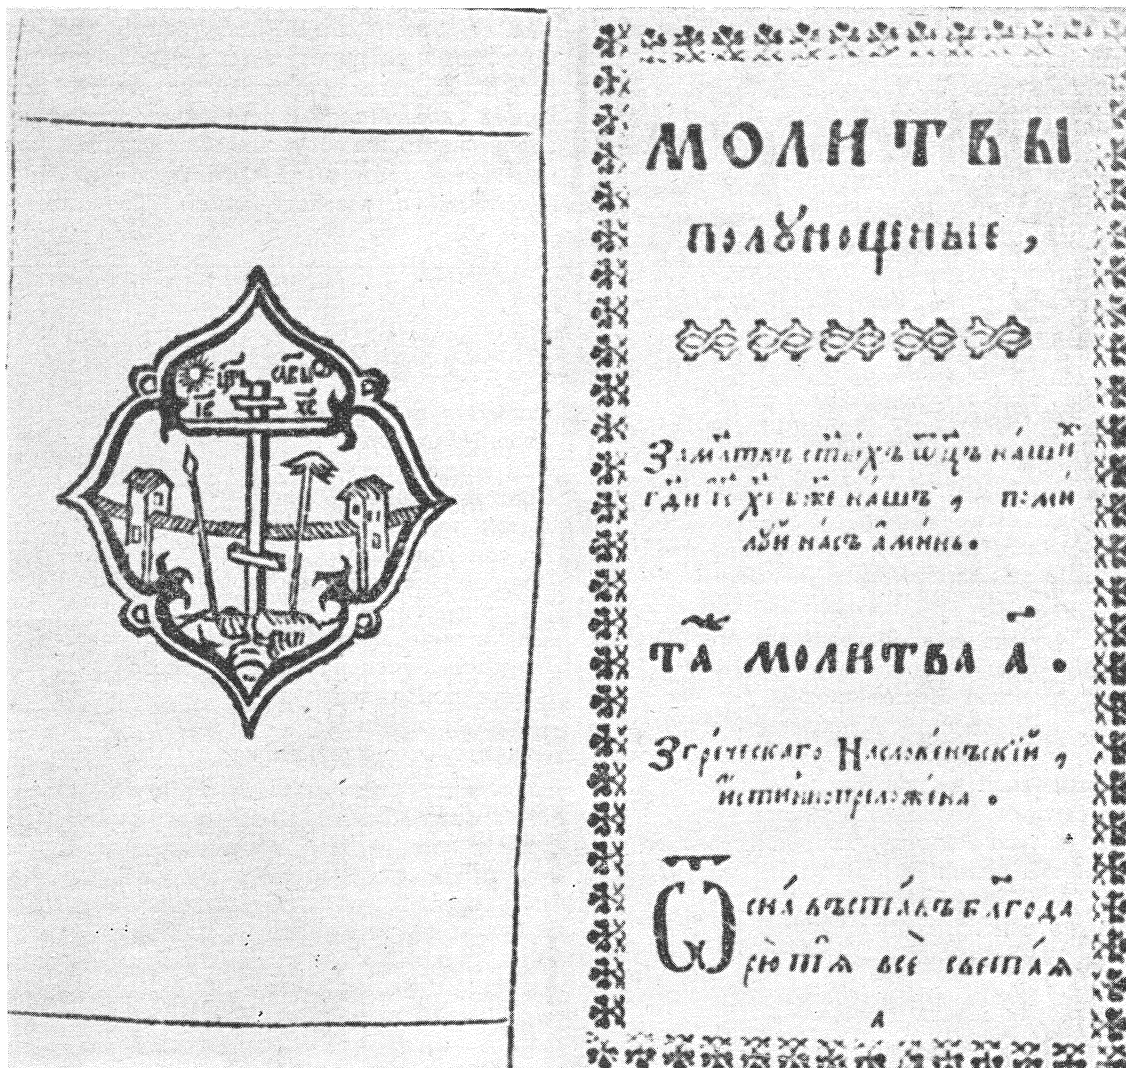 ЦРЬ СЛВЫ
ІС ХС
МОЛИТВЫ
полꙋнощные,
За мл҃твъ ст҃ы́хъ ѿц҃ъ на́ши́х
гд҃и іс҃ хе҃ бж҃е на́шъ , поми
лꙋй на́съ а҆ми́нь.
Та̀ молитва а҃.
З гре́ческаго На слове́нъскїй ,
и҆́стинно преложе́на .
Ѿ сна̀ въста́въ бл҃года
рю́ тѧ̀ всѐ свѧта́ѧ
а